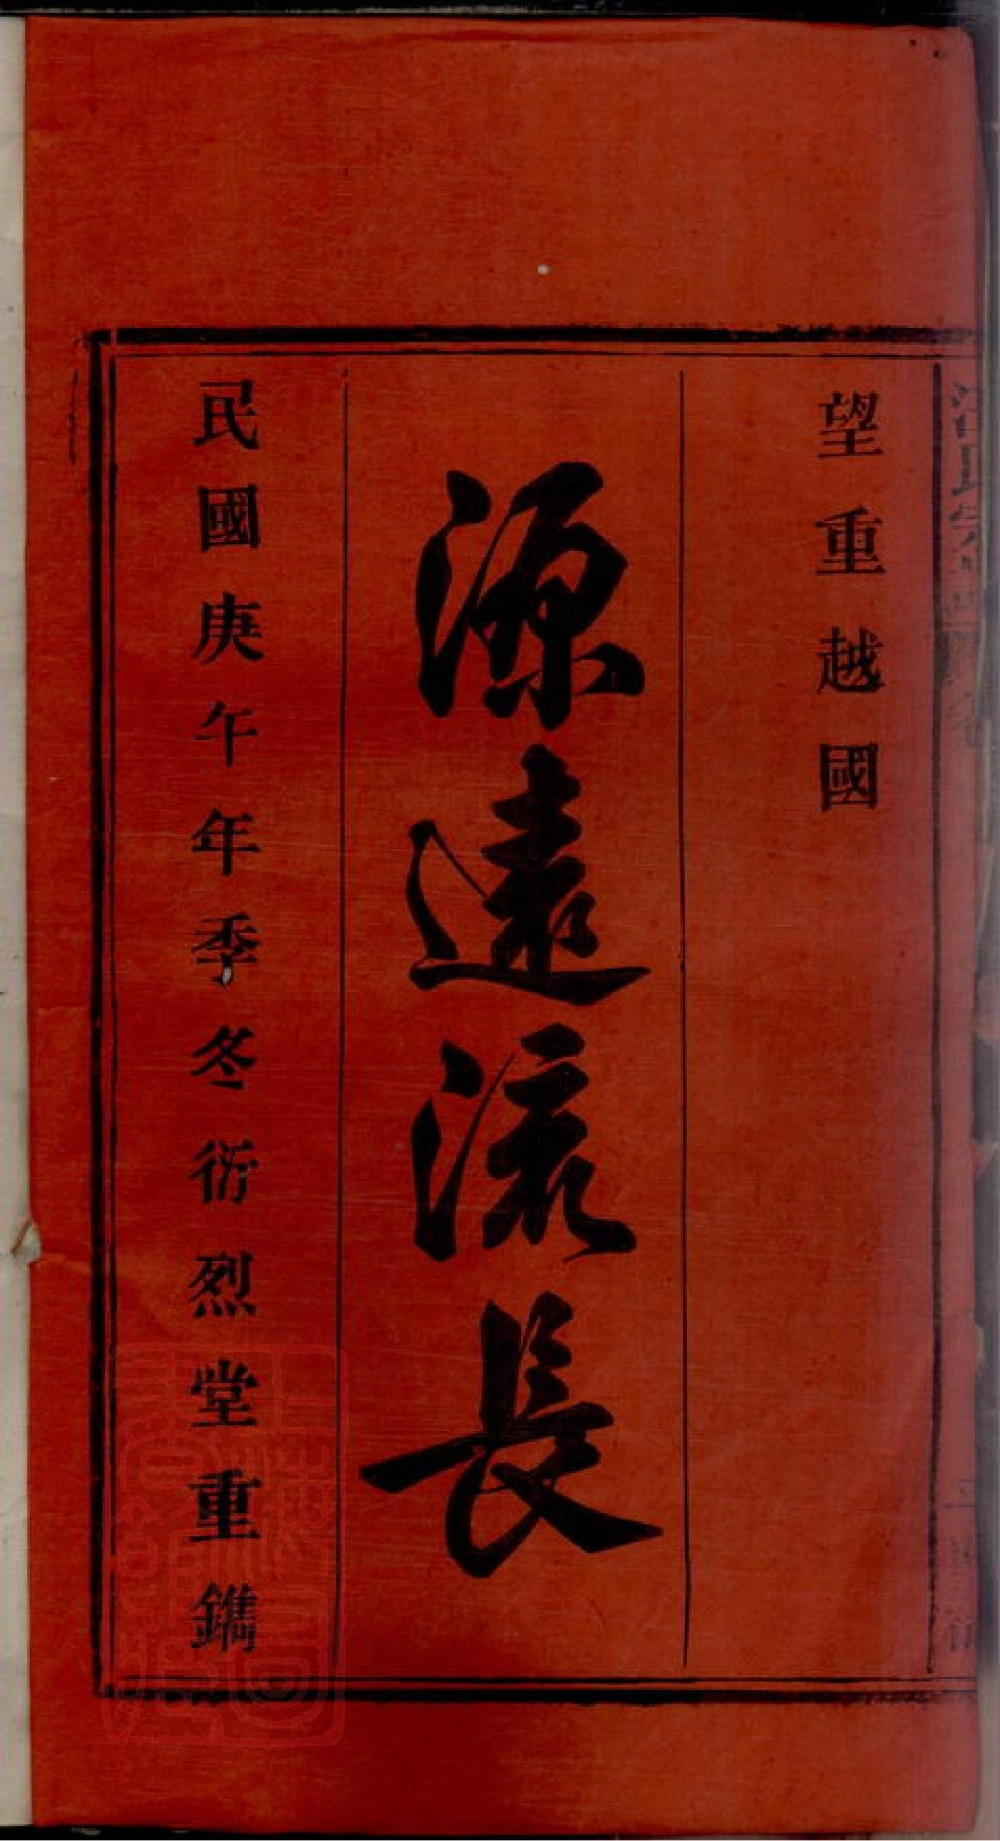 望重越國
源遠流長
民國庚午年季冬衍烈堂重鐫